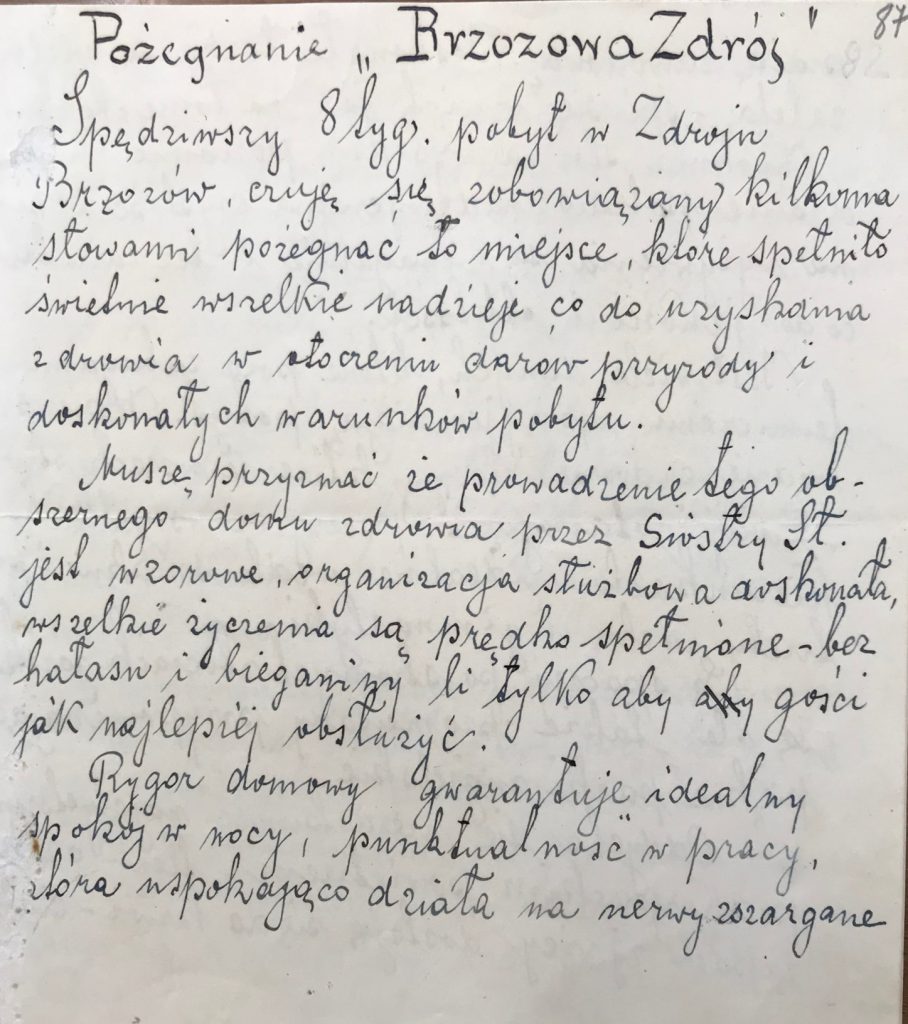 87
Pożegnanie „Brzozowa Zdrój"
Spędziwszy 8 tyg. pobyt w Zdroju
Brzozów, czuję się zobowiązany kilkoma
słowami pożegnać to miejsce, które spełniło
świetnie wszelkie nadzieje co do uzyskania
zdrowia w otoczeniu darów przyrody i
doskonałych warunków pobytu.
Muszę przyznać że prowadzenie tego ob-
szernego domu zdrowia przez Siostry St.
jest wzorowe, organizacja służbowa doskonała,
wszelkie życzenia są prędko spełnione – bez
hałasu i bieganiny li tylko aby aby gości
jak najlepiej obsłużyć.
Rygor domowy gwarantuje idealny
spokój w nocy, punktualność w pracy,
która uspokająco działa na nerwy zszargane